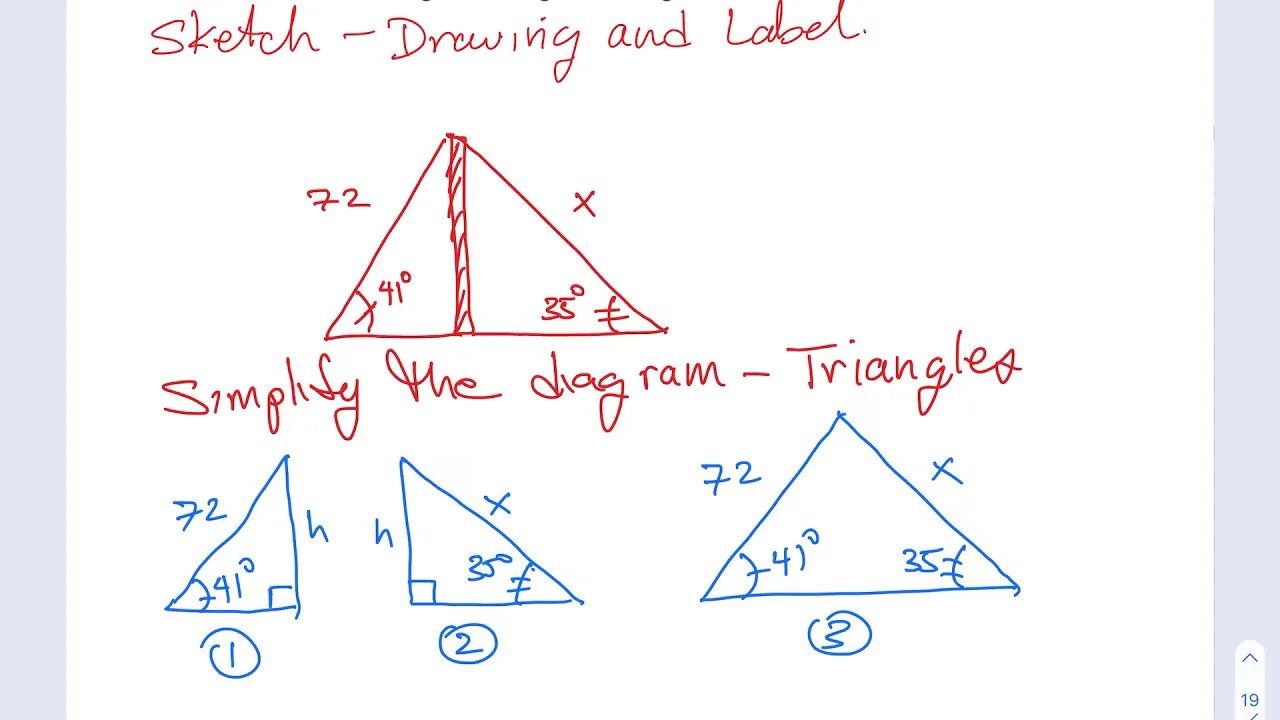 Sketch – Drawing and Label.
72
x
41°
35°
Simplify the diagram – Triangles
72
h
41°
1
h
x
35°
2
72
x
41°
35
3
19